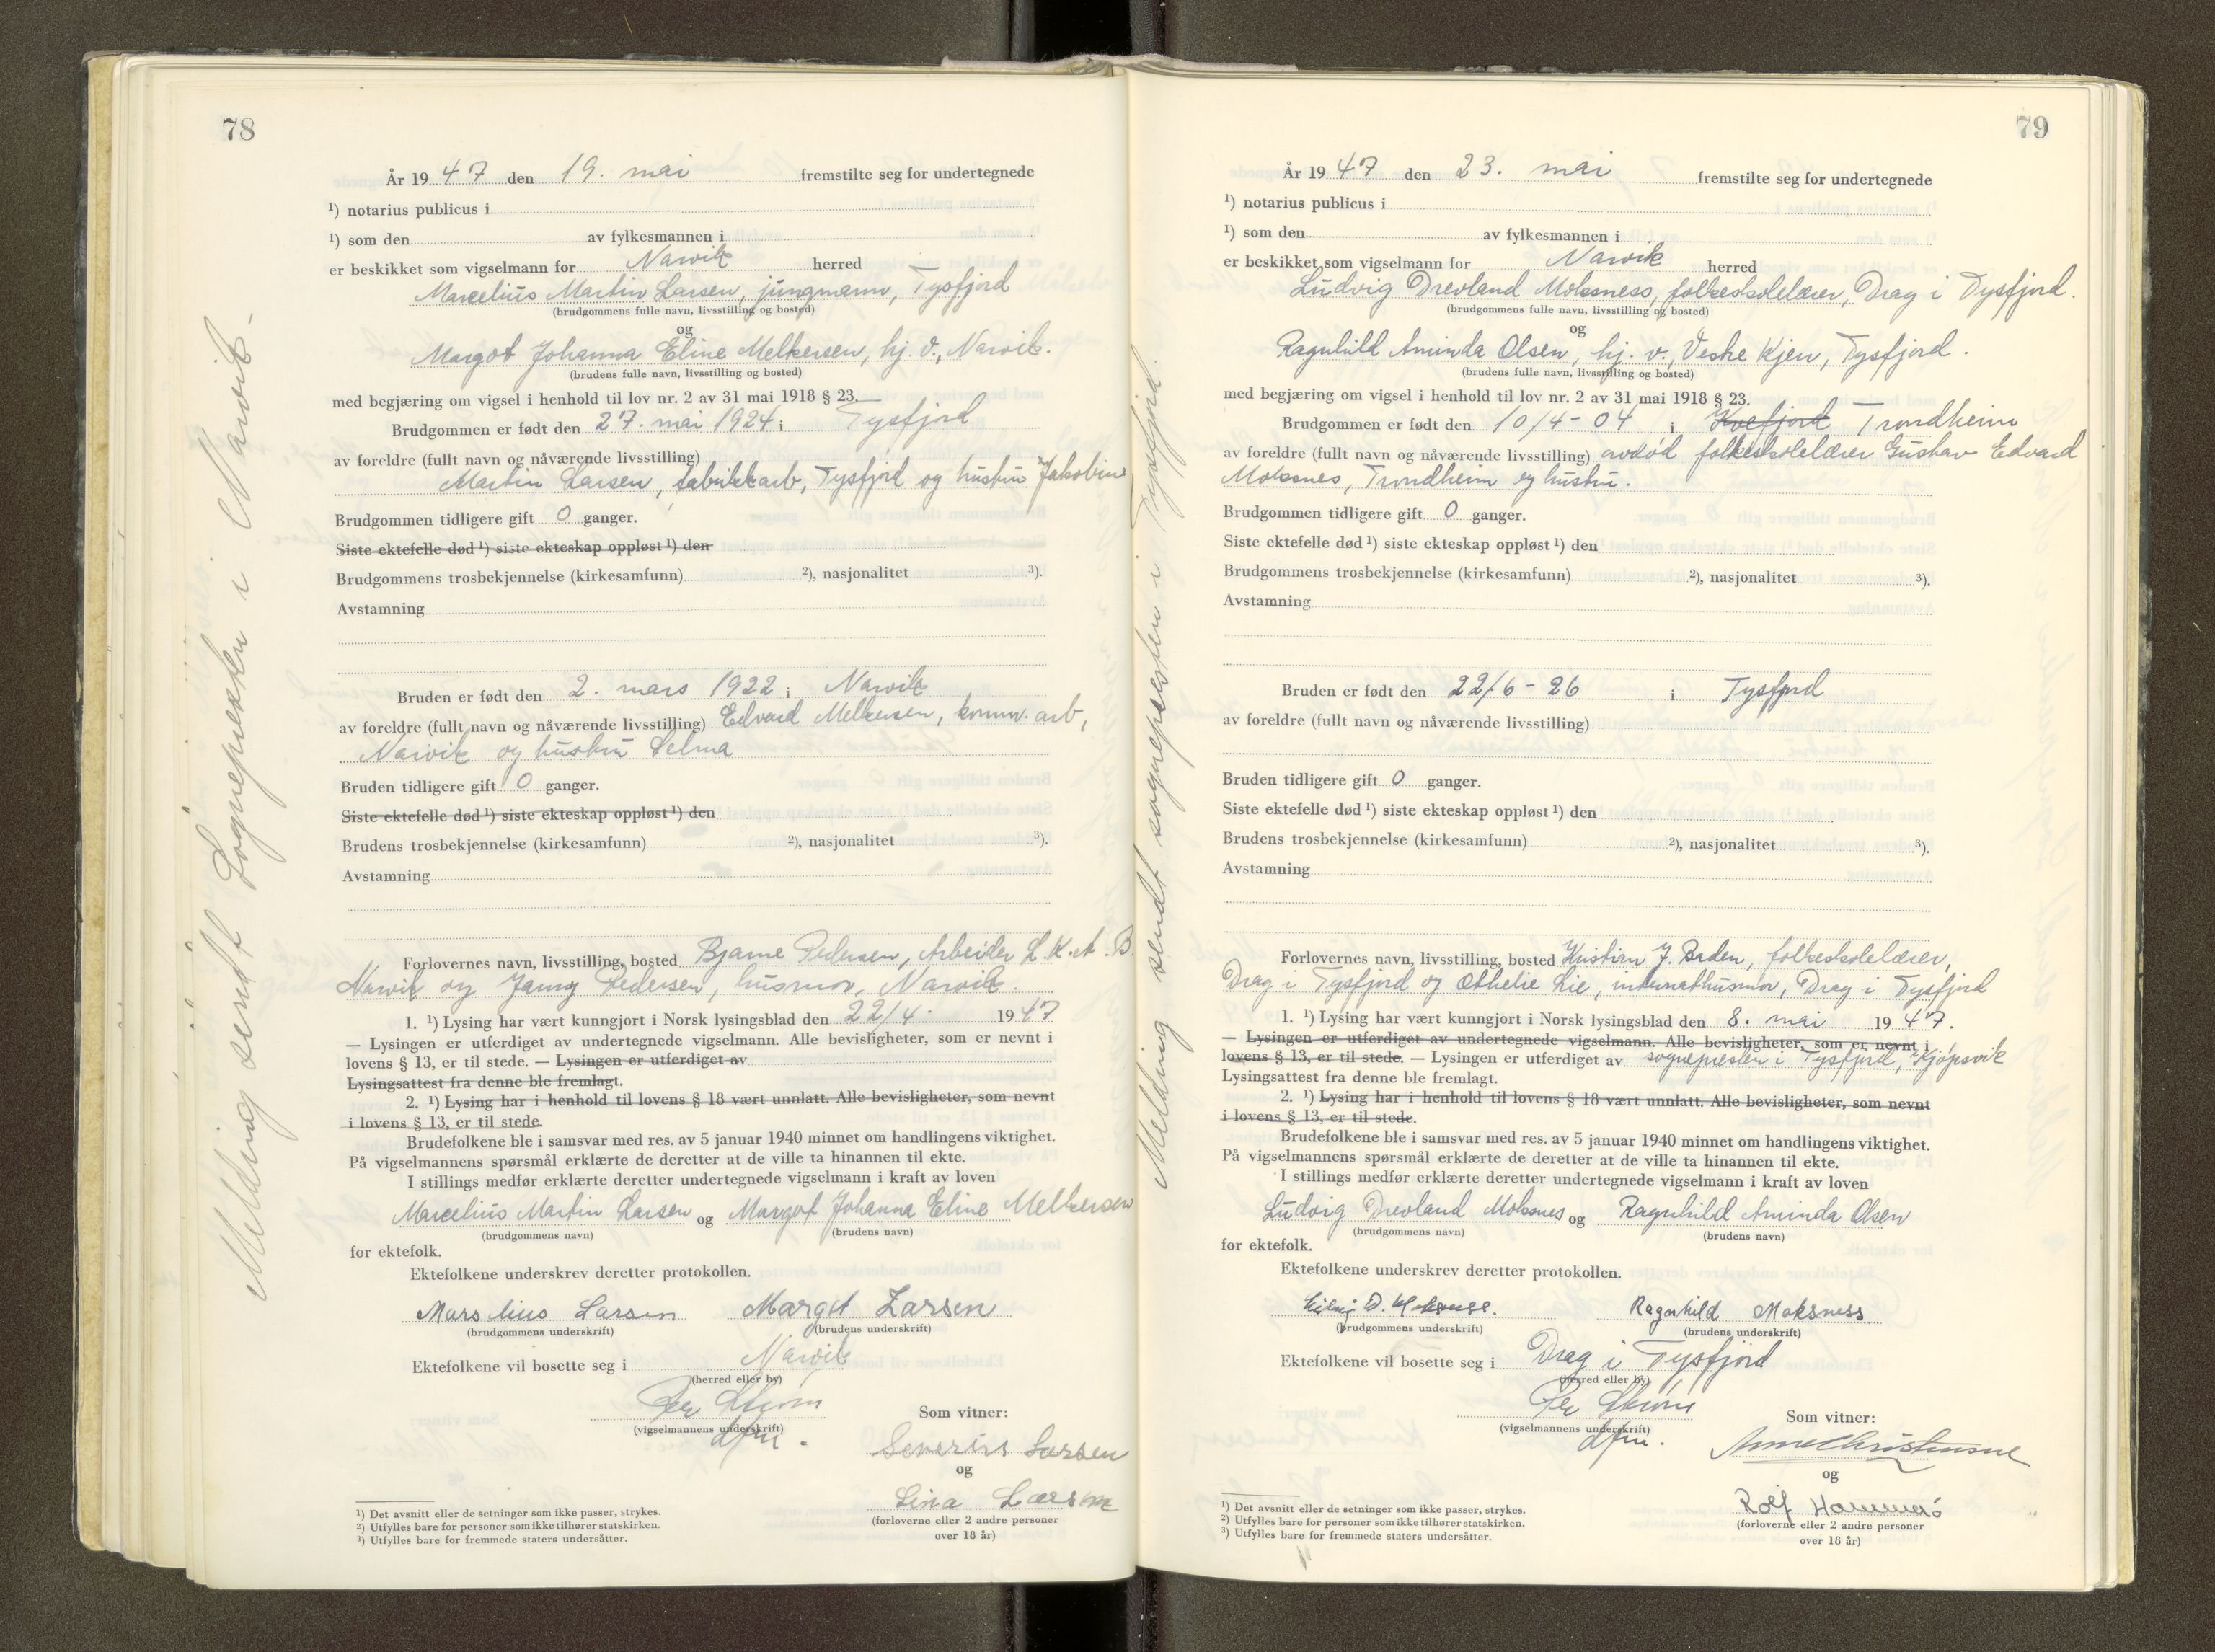 78
År 19 47 den 19. mai fremstilte seg for undertegnede
¹) notarius publicus i
¹) som den av fylkesmannen i
er beskikket som vigselmann for Narvik herred
Marcelius Martin Larsen, jungmann, Tysfjord
(brudgommens fulle navn, livsstilling og bosted)
og
Margot Johanna Eline Melkersen, hj. v., Narvik.
(brudens fulle navn, livsstilling og bosted)
med begjæring om vigsel i henhold til lov nr. 2 av 31 mai 1918 § 23.
Brudgommen er født den 27. mai 1924 i Tysfjord
av foreldre (fullt navn og nåværende livsstilling)
Martin Larsen, fabrikkarb, Tysfjord og hustru Jakobine
Brudgommen tidligere gift 0 ganger.
Siste ektefelle død ¹) siste ekteskap oppløst ¹) den
Brudgommens trosbekjennelse (kirkesamfunn) ²), nasjonalitet ³).
Avstamning
Bruden er født den 2. mars 1922 i Narvik
av foreldre (fullt navn og nåværende livsstilling) Edvard Melkersen, komm. arb,
Narvik og hustru Selma
Bruden tidligere gift 0 ganger.
Siste ektefelle død ¹) siste ekteskap oppløst ¹) den
Brudens trosbekjennelse (kirkesamfunn) ²), nasjonalitet ³).
Avstamning
Forlovernes navn, livsstilling, bosted Bjarne Pedersen, Arbeider L.K.A.B.
Narvik og Jenny Pedersen, husmor, Narvik.
1. ¹) Lysing har vært kunngjort i Norsk lysingsblad den 22/4. 19 47
— Lysingen er utferdiget av undertegnede vigselmann. Alle bevisligheter, som er nevnt i
lovens § 13, er til stede. — Lysingen er utferdiget av
Lysingsattest fra denne ble fremlagt.
2. ¹) Lysing har i henhold til lovens § 18 vært unnlatt. Alle bevisligheter, som nevnt
i lovens § 13, er til stede.
Brudefolkene ble i samsvar med res. av 5 januar 1940 minnet om handlingens viktighet.
På vigselmannens spørsmål erklærte de deretter at de ville ta hinannen til ekte.
I stillings medfør erklærte deretter undertegnede vigselmann i kraft av loven
Marcelius Martin Larsen og Margot Johanna Eline Melkersen
(brudgommens navn) (brudens navn)
for ektefolk.
Ektefolkene underskrev deretter protokollen.
Marselius Larsen Margot Larsen
(brudgommens underskrift) (brudens underskrift)
Ektefolkene vil bosette seg i Narvik
(herred eller by)
Per Strøm
(vigselmannens underskrift)
dfm.
Som vitner:
Severin Larsen
og
Lina Larsen
(forloverne eller 2 andre personer
over 18 år)
¹) Det avsnitt eller de setninger som ikke passer, strykes.
²) Utfylles bare for personer som ikke tilhører statskirken.
³) Utfylles bare for fremmede staters undersåtter.
Melding sendt Sognepresten i Narvik.
79
År 19 47 den 23. mai fremstilte seg for undertegnede
¹) notarius publicus i
¹) som den av fylkesmannen i
er beskikket som vigselmann for Narvik herred
Ludvig Drevland Moksness, folkeskolelærer, Drag i Tysfjord.
(brudgommens fulle navn, livsstilling og bosted)
og
Ragnhild Aminda Olsen, hj. v., Vestre Kjen, Tysfjord.
(brudens fulle navn, livsstilling og bosted)
med begjæring om vigsel i henhold til lov nr. 2 av 31 mai 1918 § 23.
Brudgommen er født den 10/4-04 i Kvefjord Trondheim
av foreldre (fullt navn og nåværende livsstilling) avdød folkeskolelærer Gustav Edvard
Moksnes, Trondheim og hustru.
Brudgommen tidligere gift 0 ganger.
Siste ektefelle død ¹) siste ekteskap oppløst ¹) den
Brudgommens trosbekjennelse (kirkesamfunn) ²), nasjonalitet ³).
Avstamning
Bruden er født den 22/6-26 i Tysfjord
av foreldre (fullt navn og nåværende livsstilling)
Bruden tidligere gift 0 ganger.
Siste ektefelle død ¹) siste ekteskap oppløst ¹) den
Brudens trosbekjennelse (kirkesamfunn) ²), nasjonalitet ³).
Avstamning
Forlovernes navn, livsstilling, bosted Kristian J. folkeskolelærer,
Drag i Tysfjord og Othelie Lie, internathusmor, Drag i Tysfjord
1. ¹) Lysing har vært kunngjort i Norsk lysingsblad den 8. mai 19 47.
— Lysingen er utferdiget av undertegnede vigselmann. Alle bevisligheter, som er nevnt i
lovens § 13, er til stede. — Lysingen er utferdiget av sognepresten i Tysfjord, Kjøpsvik
Lysingsattest fra denne ble fremlagt.
2. ¹) Lysing har i henhold til lovens § 18 vært unnlatt. Alle bevisligheter, som nevnt
i lovens § 13, er til stede.
Brudefolkene ble i samsvar med res. av 5 januar 1940 minnet om handlingens viktighet.
På vigselmannens spørsmål erklærte de deretter at de ville ta hinannen til ekte.
I stillings medfør erklærte deretter undertegnede vigselmann i kraft av loven
Ludvig Drevland Moksnes og Ragnhild Aminda Olsen
(brudgommens navn) (brudens navn)
for ektefolk.
Ektefolkene underskrev deretter protokollen.
Ludvig D. Moksness. Ragnhild Moksness
(brudgommens underskrift) (brudens underskrift)
Ektefolkene vil bosette seg i Drag i Tysfjord
(herred eller by)
Per Strøm
(vigselmannens underskrift)
dfm.
Som vitner:
Anne Christensen
og
Rolf Hammerø
(forloverne eller 2 andre personer
over 18 år)
¹) Det avsnitt eller de setninger som ikke passer, strykes.
²) Utfylles bare for personer som ikke tilhører statskirken.
³) Utfylles bare for fremmede staters undersåtter.
Melding sendt sognepresten i Tysfjord.